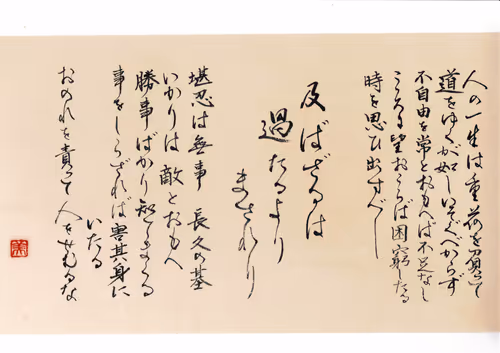 人の一生は重荷を負うて
道をゆくが如しいそぐべからず
不自由を常とおもへば不足なし
こころに望おこらば困窮したる
時を思ひ出すべし
及ばざるは
過たるより
まされり
堪忍は無事長久の基
いかりは敵とおもへ
勝事ばかり知りまくる
事をしらざれば害其身に
いたる
おのれを責て人をせむるな